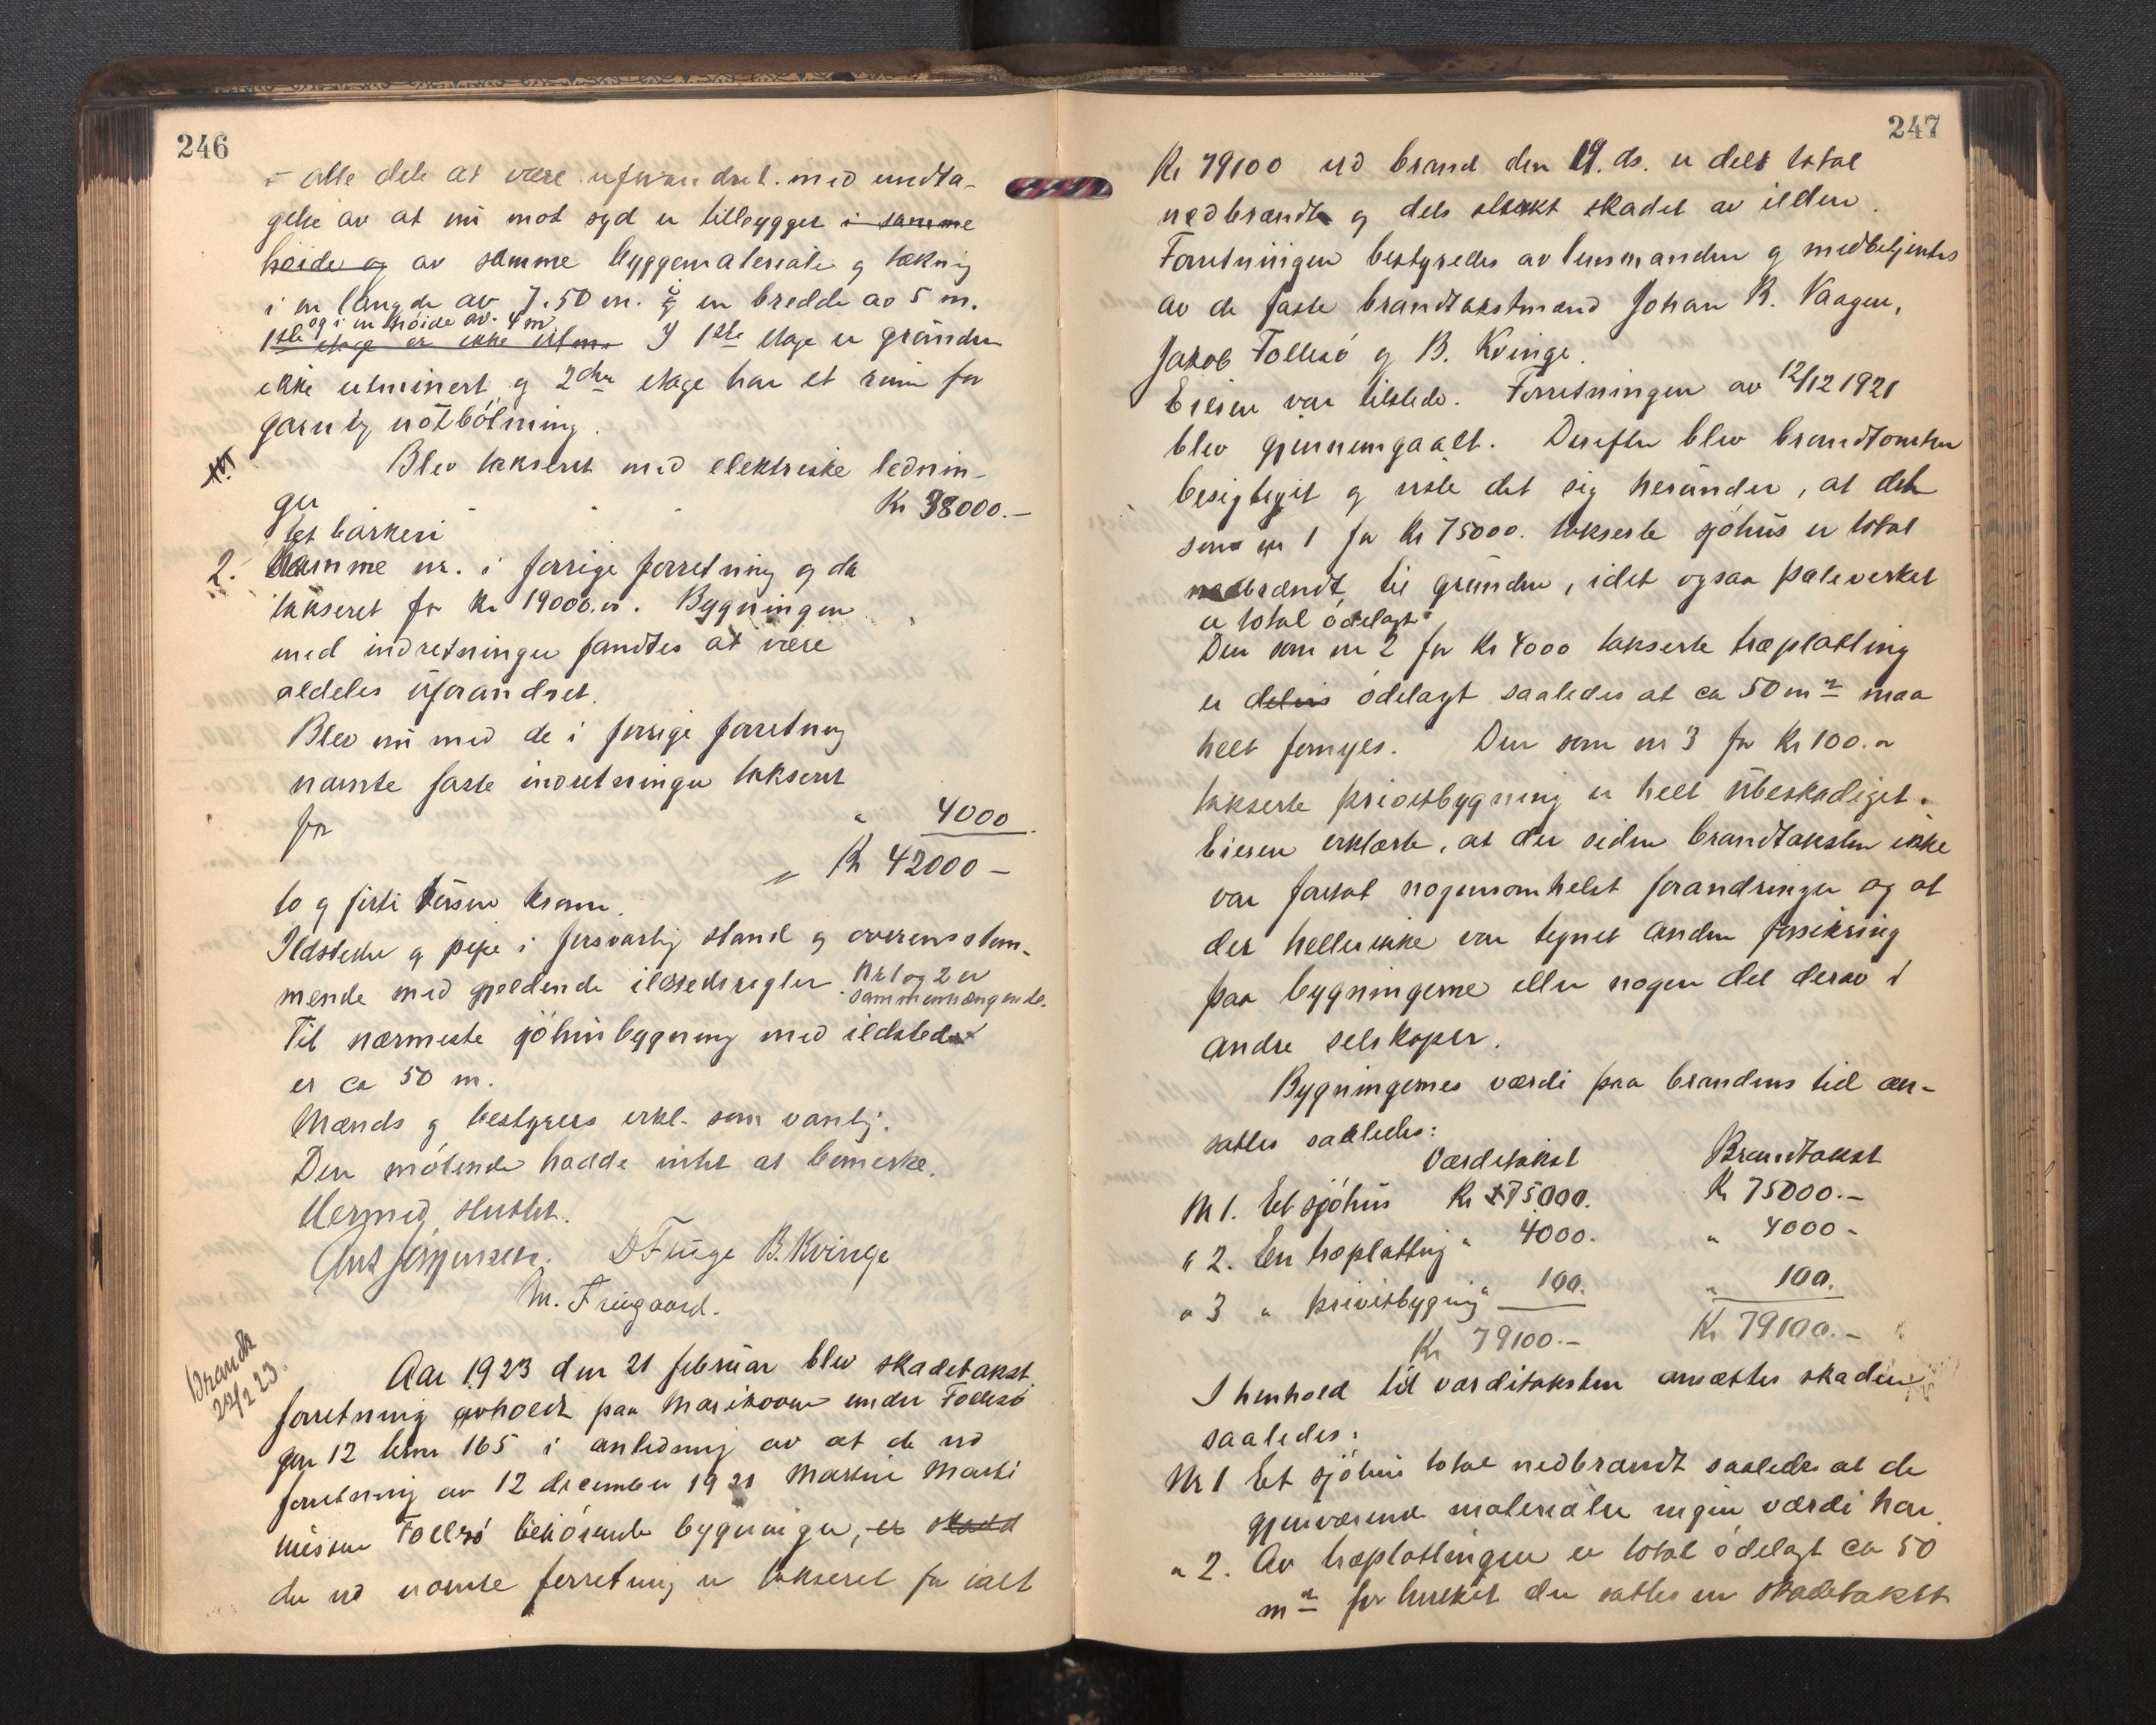 246
i alle dele at være uforandret med undta-
gelse av at nu mot syd er tilbygget i samme
høide og av samme byggemateriale og tækning
i en længde av 7.50 m. & en bredde av 5 m.
og i en høide av 4 m
1ste etage er ikke utm. I 1ste etage er grunden
ikke utminert og 2den etage har et rum for
garn og notbøtning.
Blev takseret med elektriske lednin-
ger Kr 38000.-
Et barkeri
2. Samme nr. i forrige forretning og da
takseret for kr 19000.00. Bygningen
med indretninger fandtes at være
aldeles uforandret.
Blev nu med de i forrige forretning
nævnte faste indretninger takseret
for " 4000.
Kr 42000 -
to og firti tusen kroner.
Ildsteder og pipe i forsvarlig stand og overensstem-
mende med gjeldende ildstedsregler Nr 1 og 2 er
sammenhængende.
Til nærmeste sjøhusbygning med ildsted
er ca 50 m.
Mænds og bestyrers erkl. som vanlig.
Den møtende hadde intet at bemerke.
Hermed sluttet.
Ant Jørgensen. D Fluge B. Kvinge
M. Friigaard.
Brandt
22/2 23.
Aar 1923 den 21 februar blev skadetakst
forretning avholdt paa Marikoven under Follesø
gnr 12 brnr 165 i anledning av at de ved
forretning av 12 december 1921 Martin Marti
nussen Follesø tilhørende bygninger, er skadd
der ved nævnte forretning er takseret for ialt
247
Kr 79100 ved brand den 19. ds. er dels total
nedbrændt og dels sterkt skadet av ilden.
Forretningen bestyredes av lensmanden og medbetjentes
av de faste brandtakstmænd Johan R. Vaagen,
Jakob Follesø og B. Kvinge.
Eieren var tilstede. Forretningen av 12/12 1921
blev gjennemgaat. Derefter blev brandtomten
besigtiget og viste det sig herunder, at det
som nr 1 for kr 75000. takserte sjøhus er total
nedbrændt til grunden, idet ogsaa paleverket
er total ødelagt.
Den som nr 2 for kr 4000 takserte træplatting
er delvis ødelagt saaledes at ca 50 m2 maa
helt fornyes. Den som nr 3 for Kr 100.00
takserte privetbygning er helt ubeskadiget.
Eieren erklærte, at der siden brandtaksten ikke
var foretat nogensomhelst forandringer og at
der heller ikke var tegnet anden forsikring
paa bygningerne eller nogen del derav i
andre selskaper.
Bygningernes værdi paa brandens tid an-
sattes saaledes:
Værditakst Brandtakst
Nr 1. Et sjøhus Kr 75000. Kr 75000.-
" 2. En træplatting " 4000. " 4000-
" 3 " privetbygning " 100. " 100.
Kr 79100.- Kr 79100.-
I henhold til værditaksten ansættes skaden
saaledes:
Nr 1 Et sjøhus total nedbrændt saaledes at de
gjenværende materialer ingen værdi har.
" 2. Av træplattingen er total ødelagt ca 50
m2 for hvilket der sattes en skadetakst